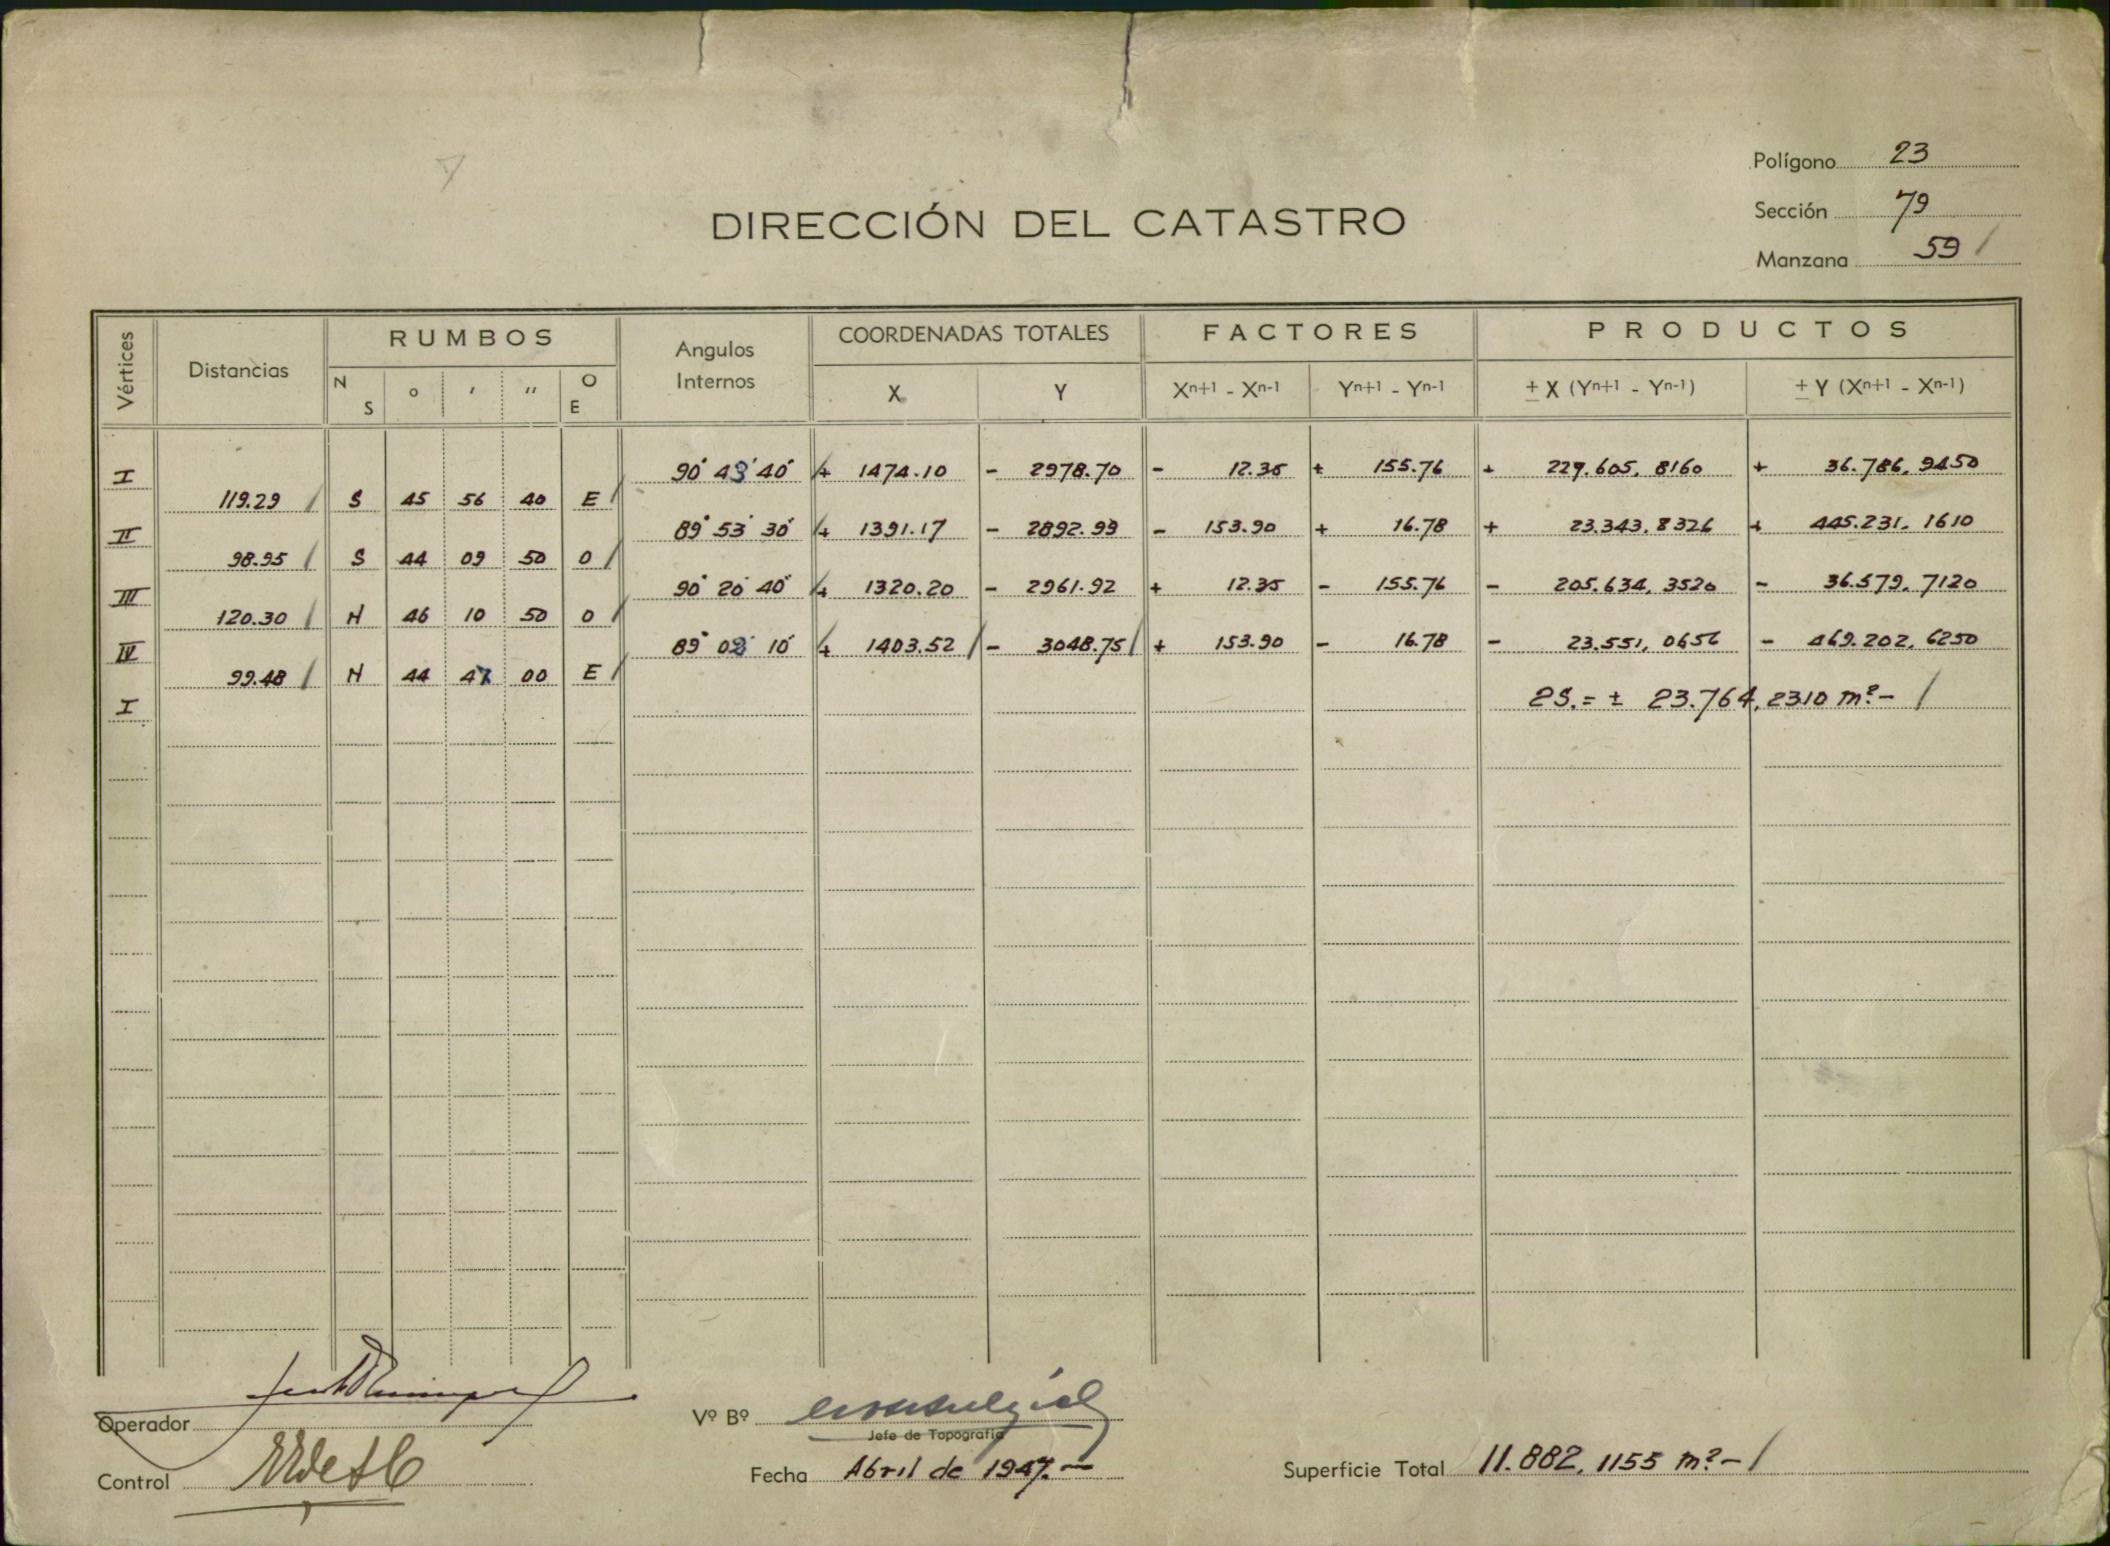 Polígono 23
Sección 79
Manzana 59
DIRECCIÓN DEL CATASTRO
Vértices Distancias RUMBOS Angulos Internos COORDENADAS TOTALES FACTORES PRODUCTOS
N S ° ′ ″ O E X Y Xn+1 - Xn-1 Yn+1 - Yn-1 ± X (Yn+1 - Yn-1) ± Y (Xn+1 - Xn-1)
I 90° 43' 40" + 1474.10 - 2978.70 - 12.35 + 155.76 + 229.605,8160 + 36.786,9450
119.29 S 45 56 40 E
II 89° 53' 30" + 1391.17 - 2892.99 - 153.90 + 16.78 + 23.343,8326 + 445.231,1610
98.95 S 44 09 50 O
III 90° 20' 40" + 1320.20 - 2961.92 + 12.35 - 155.76 - 205.634,3520 - 36.579,7120
120.30 N 46 10 50 O
IV 89° 02' 10" + 1403.52 - 3048.75 + 153.90 - 16.78 - 23.551,0656 - 469.202,6250
99.48 N 44 47 00 E
I 2S.= ± 23.764,2310 m².-
Operador
Vº Bº
Jefe de Topografía
Control
Fecha Abril de 1947.-
Superficie Total 11.882,1155 m².-